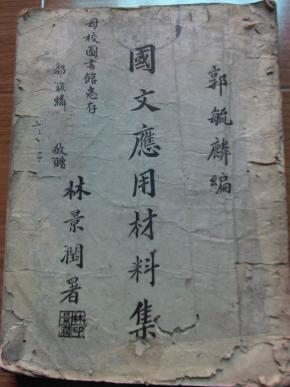 郭毓麟編
國文應用材料集
林景潤署
母校圖書館惠存
郭毓麟 敬贈